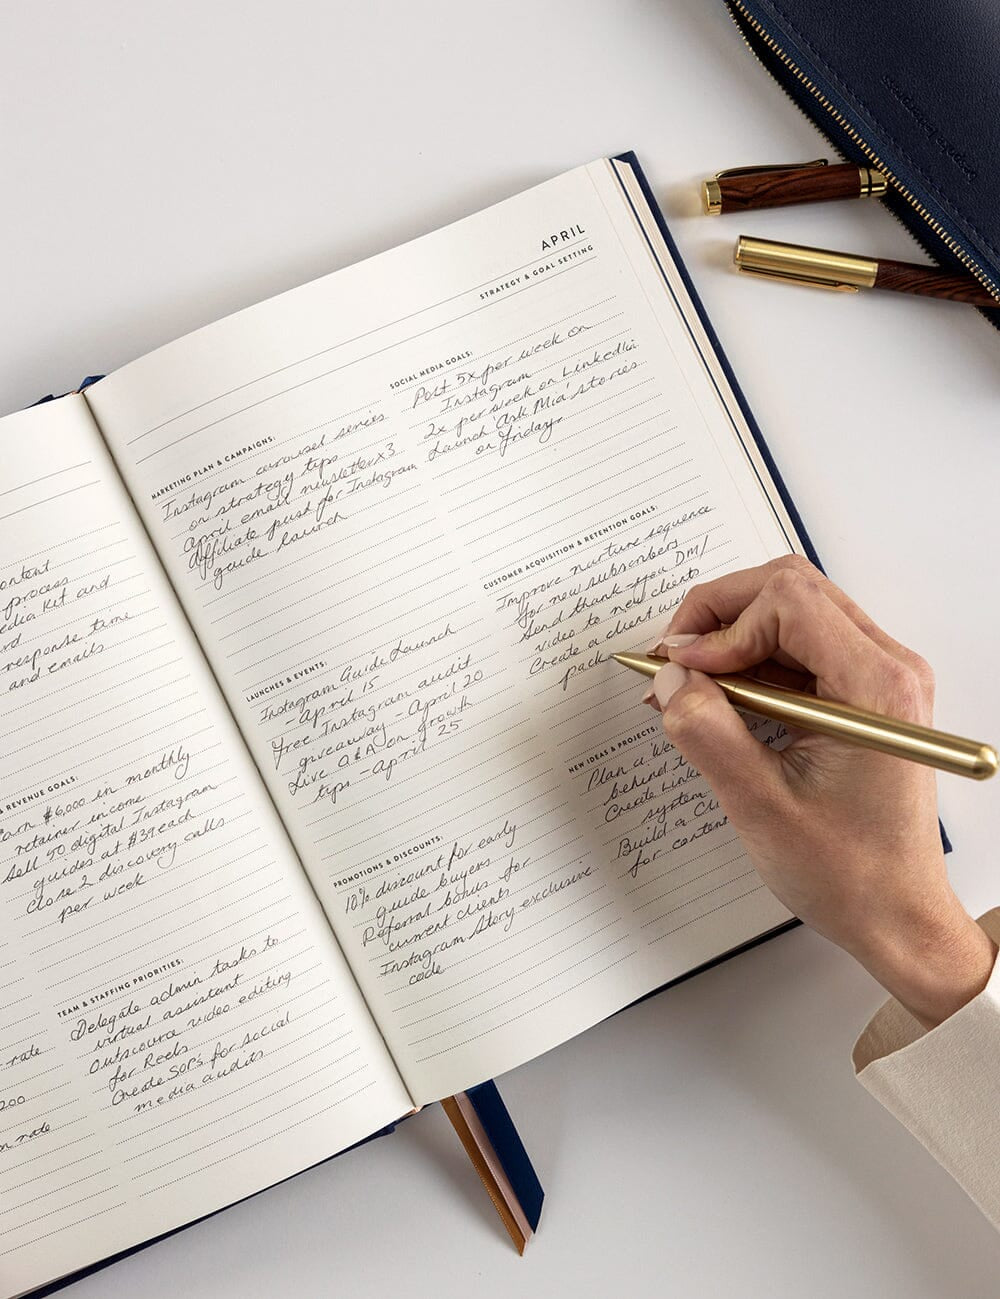 ontent
process
edia kit and
rd
response time
and emails
& REVENUE GOALS:
Earn $6,000 in monthly
retainer income
Sell 50 digital Instagram
guides at $39 each
Close 2 discovery calls
per week
rate
200
n rate
TEAM & STAFFING PRIORITIES:
Delegate admin tasks to
virtual assistant
Outsource video editing
for Reels
Create SOP's for social
media audits
APRIL
STRATEGY & GOAL SETTING
MARKETING PLAN & CAMPAIGNS:
Instagram carousel series
on strategy tips
April email newsletter x 3
Affiliate push for Instagram
guide launch
LAUNCHES & EVENTS:
Instagram Guide Launch
- April 15
Free Instagram audit
giveaway - April 20
Live Q&A on growth
tips - April 25
PROMOTIONS & DISCOUNTS:
10% discount for early
guide buyers
Referral bonus for
current clients
Instagram Story exclusive
code
SOCIAL MEDIA GOALS:
Post 5x per week on
Instagram
2x per week on LinkedIn
Launch 'Ask Mia' stories
on Fridays
CUSTOMER ACQUISITION & RETENTION GOALS:
Improve nurture sequence
for new subscribers
Send thank-you DM/
video to new clients
Create a client wel
pack
NEW IDEAS & PROJECTS:
Plan a 'We
behind t
Create Linke
system
Build a Cl
for content